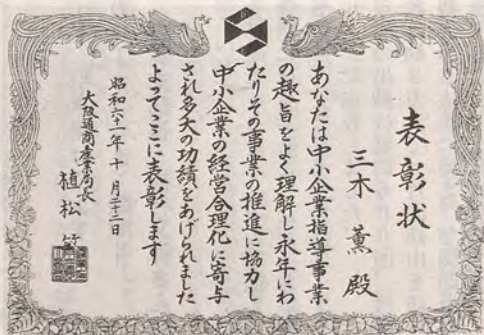 表彰状
三木薫殿
あなたは中小企業指導事業
の趣旨をよく理解し永年にわ
たりその事業の推進に協力し
中小企業の経営合理化に寄与
され多大の功績をあげられました
よってここに表彰します
昭和六十一年十月二十三日
大阪通商産業局長
植松